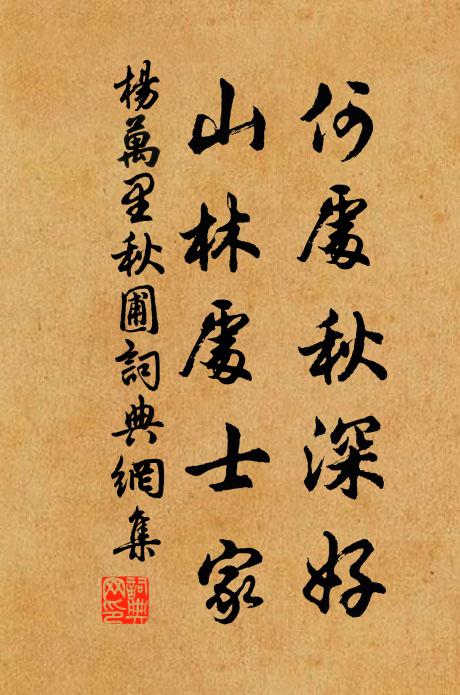 何處秋深好
山林處士家
楊萬里秋圃詞典網集
詞典网印